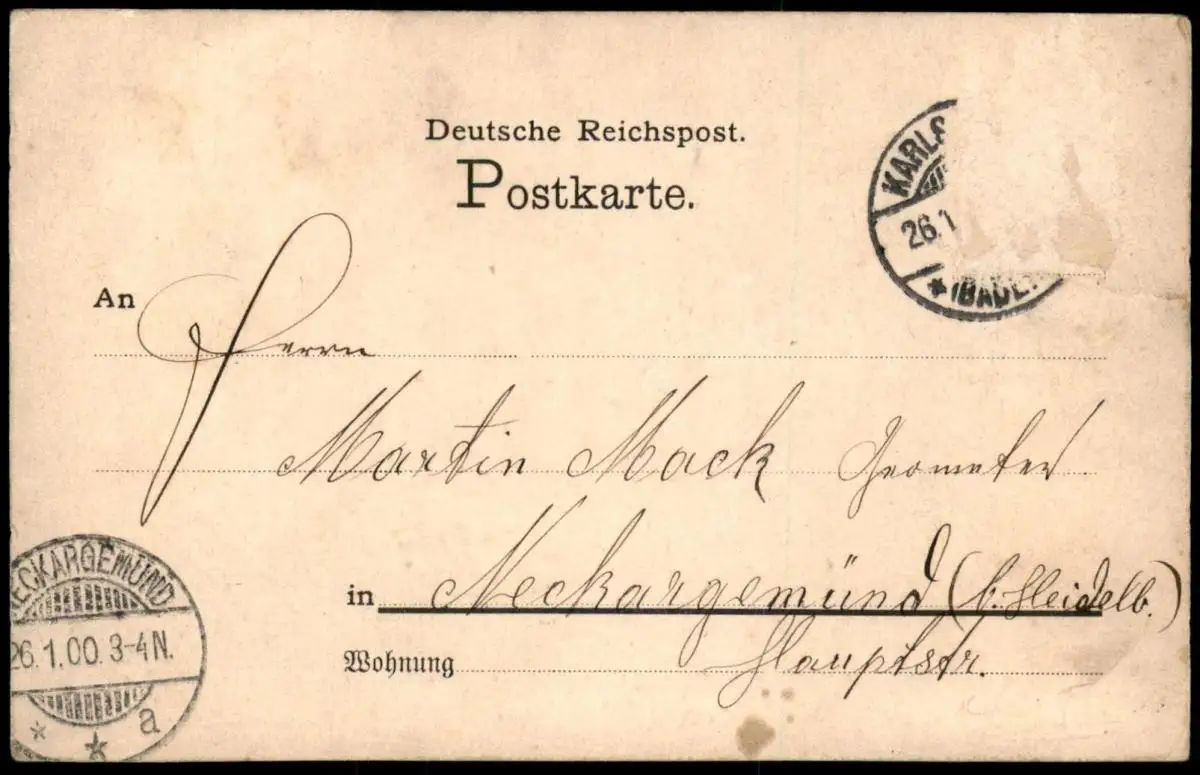 Deutsche Reichspost.
Postkarte.
KARLS
26.1
* (BADEN
An
Herrn
Martin Mack Geometer
in Neckargemünd (b. Heidelb.)
Wohnung Hauptstr.
NECKARGEMÜND
26.1.00.3-4N.
* * a